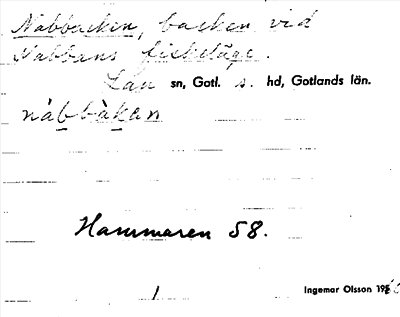 Nabbbacken, backen vid
Nabbans fiskeläge.
Lau sn, Gotl. s. hd, Gotlands län.
nàbbàkan
Hammaren 58.
1
Ingemar Olsson 195